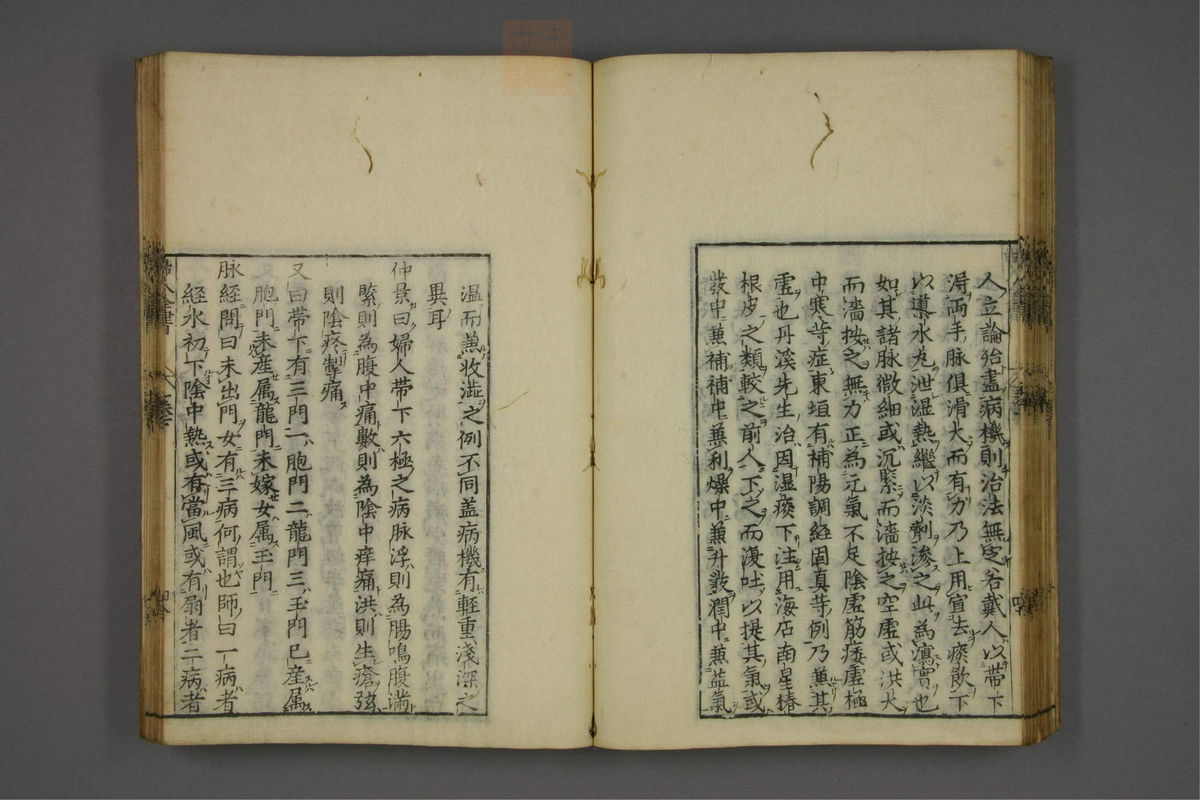 人立論殆盡病機則治法無定若戴人以帶下
淂両手脉俱滑大而有力乃上用宣去痰飲下
以導水丸泄湿熱継以淡劑滲之此為瀉實也
如其諸脉微細或沉緊而濇按之空虛或洪大
而濇按之無力正為元氣不足陰虛筋痿虛極
中寒等症東垣有補陽調経固真等例乃兼其
虛也丹溪先生治因湿痰下注用海石南星椿
根皮之類較之前人下之而復吐以提其氣或
發中兼補補中兼利燥中兼升發潤中兼益氣
温而兼收澁之例不同盖病機有輕重淺深之
異耳
仲景曰婦人帶下六極之病脉浮則為腸鳴腹満
緊則為腹中痛數則為陰中痒痛洪則生瘡弦
則陰疼掣痛
又曰帶下有三門一胞門二龍門三玉門已産属
胞門未産属龍門未嫁女属玉門
脉經問曰未出門女有三病何謂也師曰一病者
経水初下陰中熱或有當風或有扇者二病者